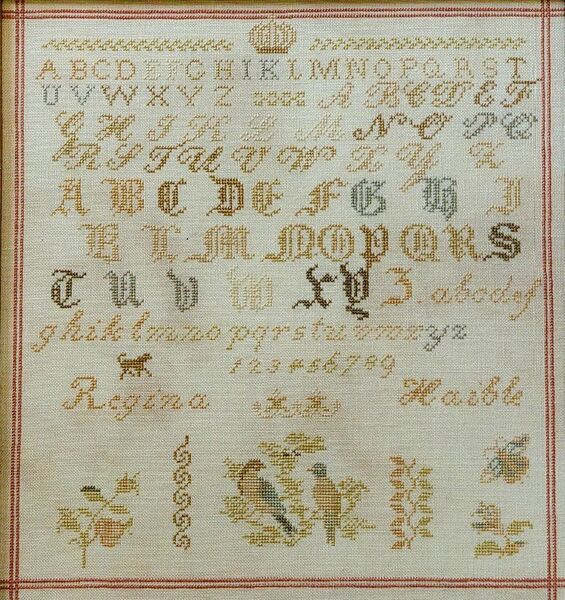 ABCDEFGHIKLMNOPQRST
UVWXYZ ABCDEF
GHIKLMNOPQ
RSTUVWXYZ
ABCDEFGHI
KLMNOPQRS
TUVWXYZ abcdef
ghiklmnopqrstuvwxyz
123456789
Regina Haible